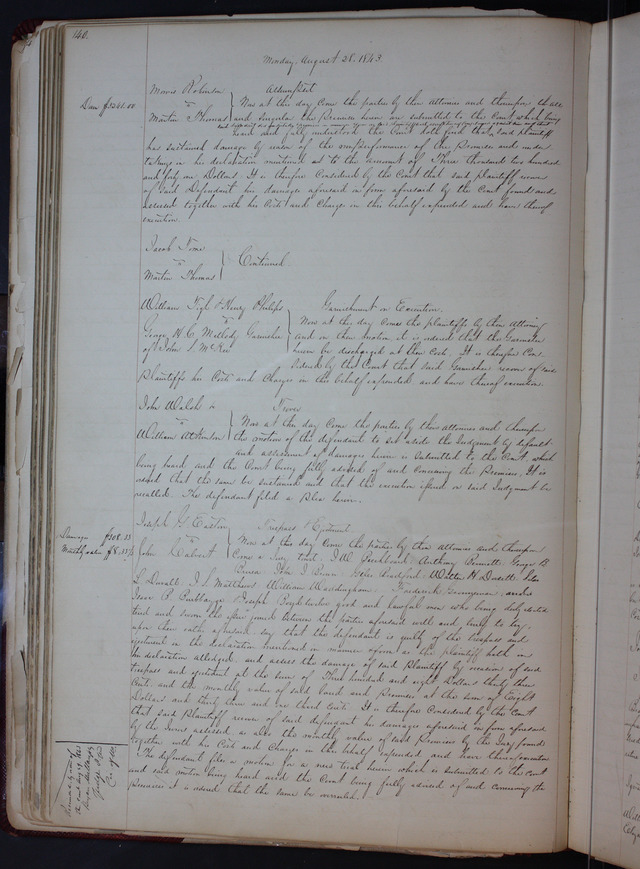 140.
Monday, August 28. 1843.
Morris Robinson Assumpsit
vs
Martin Thomas
Dam $3241.00
Now at this day come the parties by their attornies and thereupon all
and singular the Premises herein are submitted to the Court which being
heard and fully understood the Court doth find that said plaintiff
has sustained damage by reason of the nonperformance of the Promises and under
takings in the declaration mentioned to the amount of Three thousand two hundred
and forty one Dollars. It is therefore Considered by the Court that said plaintiff recover
of said Defendant his damages aforesaid in form aforesaid by the Court found and
assessed together with his Costs and Charges in this behalf expended and have thereof
execution.
Jacob
vs
Martin Thomas
Continued
William & Henry Philips Garnishment on Execution.
vs
George H. C. Melody Garnishee
of John S McKee
Now at this day come the plaintiffs by their Attorney
and on their motion it is ordered that the Garnishee
herein be discharged at their Costs. It is therefore Con
sidered by the Court that said Garnishee recover of said
Plaintiffs his Costs and Charges in this behalf expended and have thereof execution.
John Walsh Trover
vs
William Atkinson
Now at this day come the parties by their attornies and thereupon
the motion of the defendant to set aside the Judgment by default
and assessment of damages herein is submitted to the Court, which
being heard and the Court being fully advised of and concerning the Premises, It is
ordered that the same be sustained and that the execution issued on said Judgment be
recalled. The defendant filed a Plea herein.
Joseph Easton Trespass & Ejectment
vs
John Calvert
Damages $308.33
Monthly value $8.33⅓
Now at this day come the parties by their attornies and thereupon
Come a Jury towit, Anthony Bennett, George B
Walter H. Dorsett,
L. Duvall, J. S. Matthews, William Waddingham, Frederick
Isaac P. & Joseph good and lawful men who being duly elected
tried and sworn the issue joined between the parties aforesaid well and truly to try,
upon their oaths aforesaid say that the defendant is guilty of the trespass and
ejectment in the declaration mentioned in manner & form as the plaintiff hath in
his declaration alledged, and assess the damage of said Plaintiff by occasion of said
trespass and ejectment at the sum of Three hundred and eight Dollars thirty three
Cents and the monthly value of said land and Premises at the sum of Eight
Dollars and thirty three and one third Cents. It is therefore Considered by the Court
that said Plaintiff recover of said defendant his damages aforesaid in form aforesaid
by the Jurors assessed, as also the monthly value of said Premises by the Jury found
together with his Costs and Charges in this behalf expended and have thereof execution
The defendant files a motion for a new trial herein which is submitted to the Court
and said motion being heard and the Court being fully advised of and concerning the
premises it is ordered that the same be overruled.